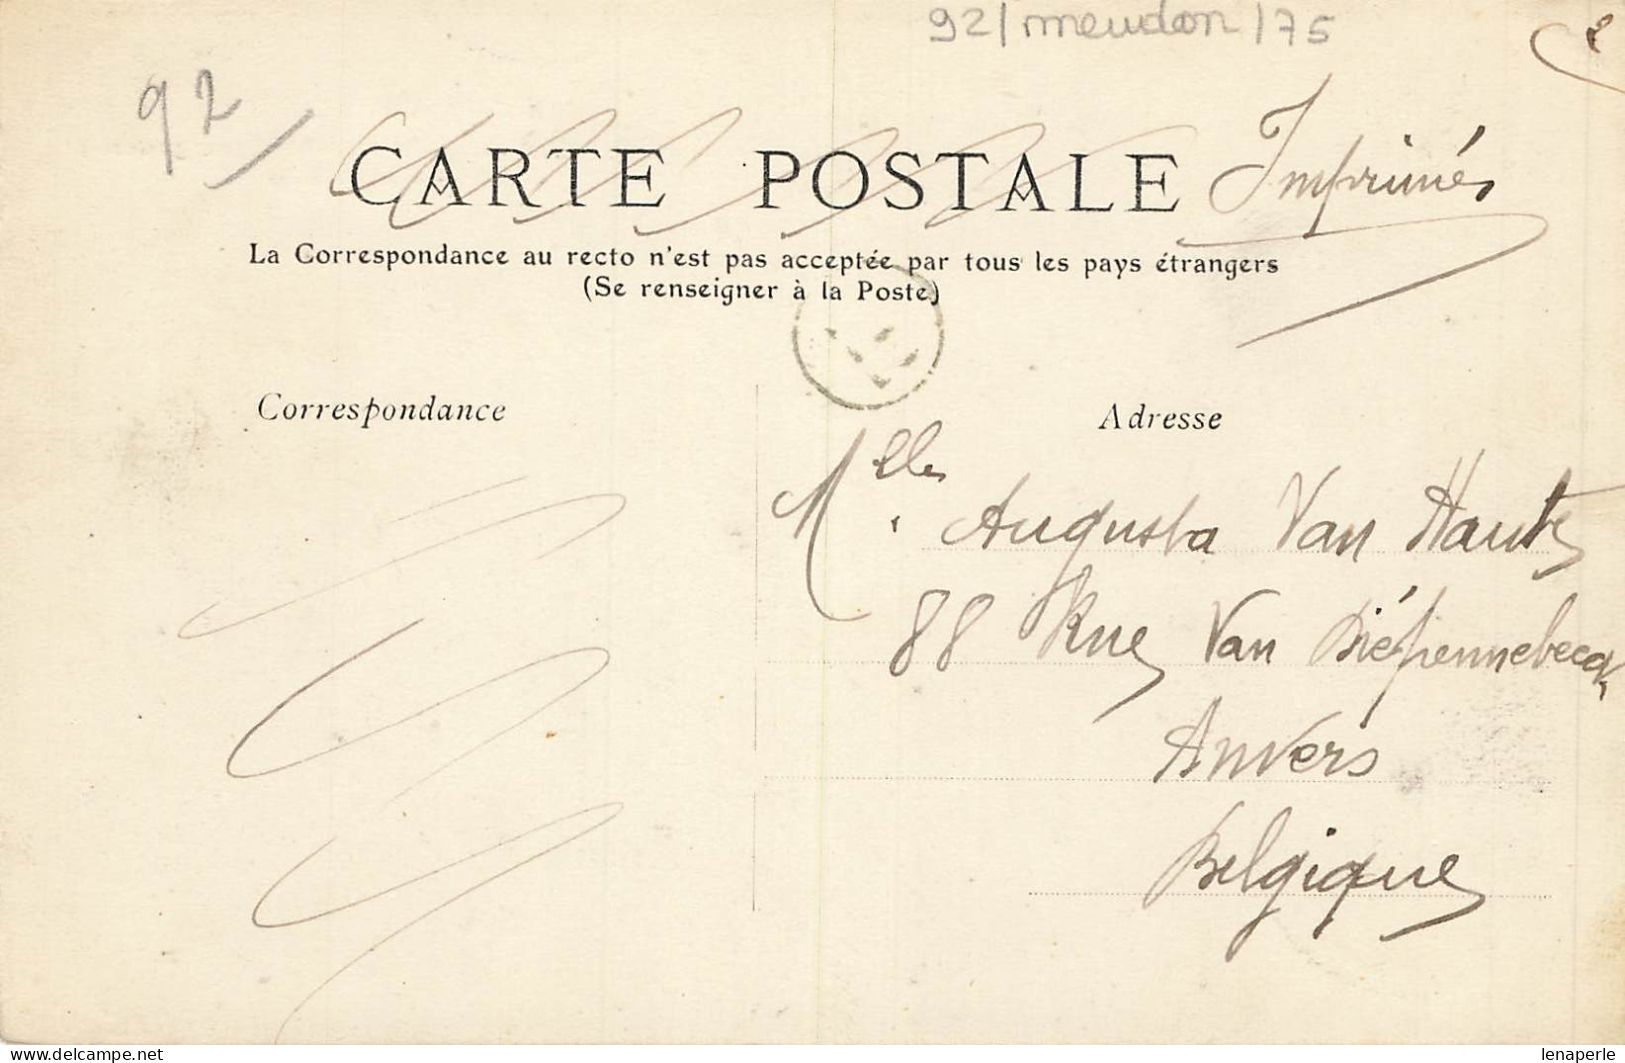 92 / meudon / 75
92
CARTE POSTALE
Imprimés
La Correspondance au recto n'est pas acceptée par tous les pays étrangers
(Se renseigner à la Poste)
Correspondance
Adresse
Mlle Augusta Van Haute
88 Rue Van Diépennebecq
Anvers
Belgique
www.delcampe.net
lenaperle